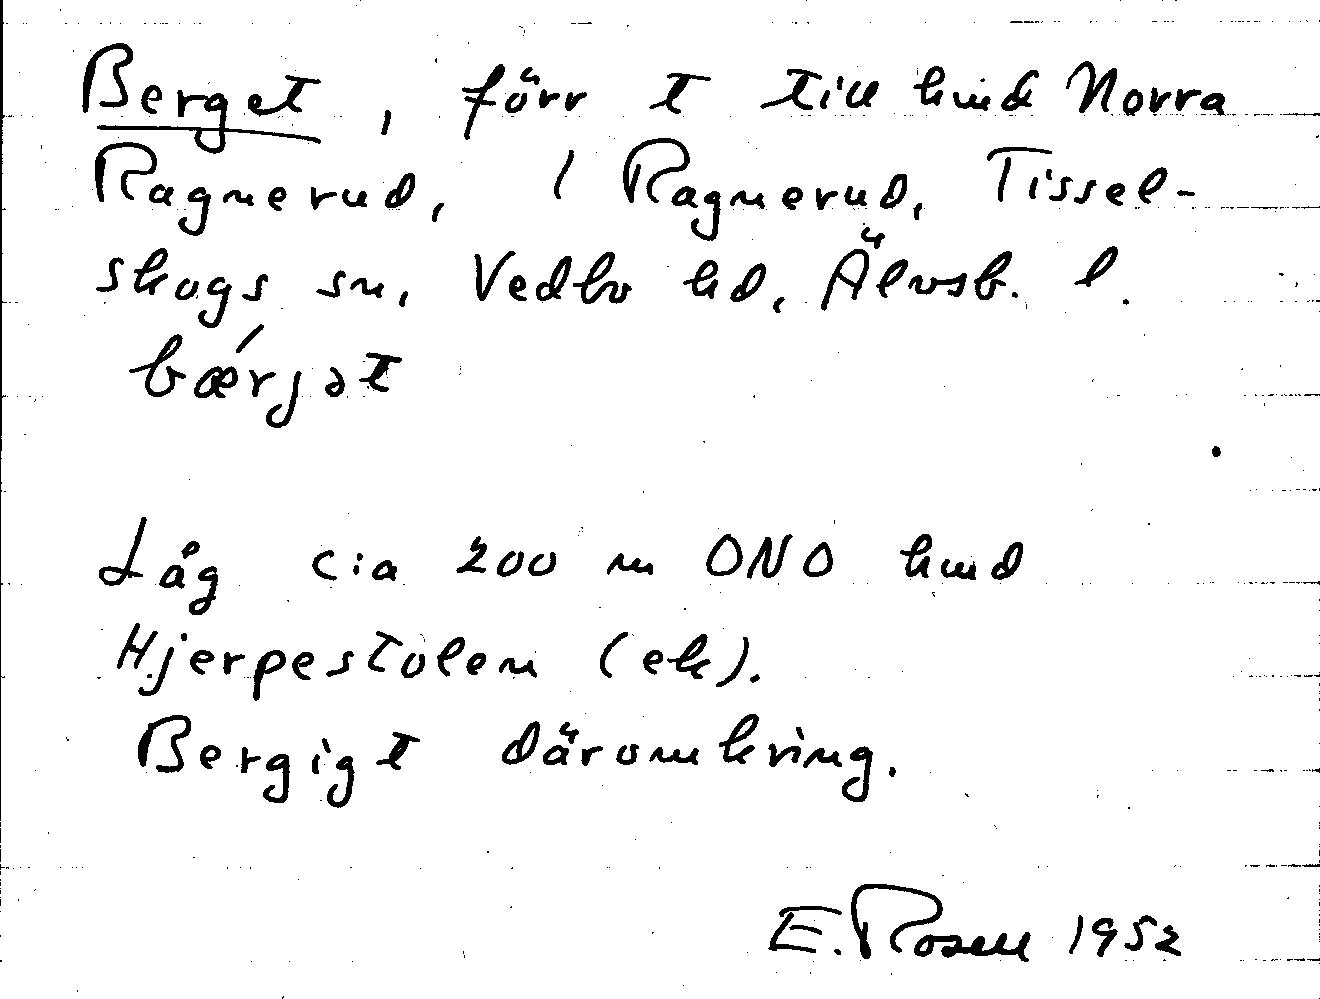 Berget, förr t till hmd Norra
Ragnerud, 1 Ragnerud, Tissel-
skogs sn, Vedbo hd, Älvsb. l.
bærjət
Låg c:a 200 m ONO hmd
Hjerpestolen (ek).
Bergigt däromkring.
E. Rosell 1952